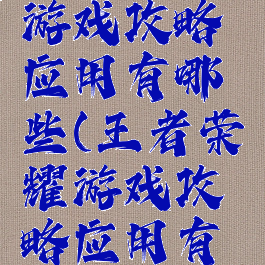 游戏攻略
应用有哪
些(王者荣
耀游戏攻
略应用有